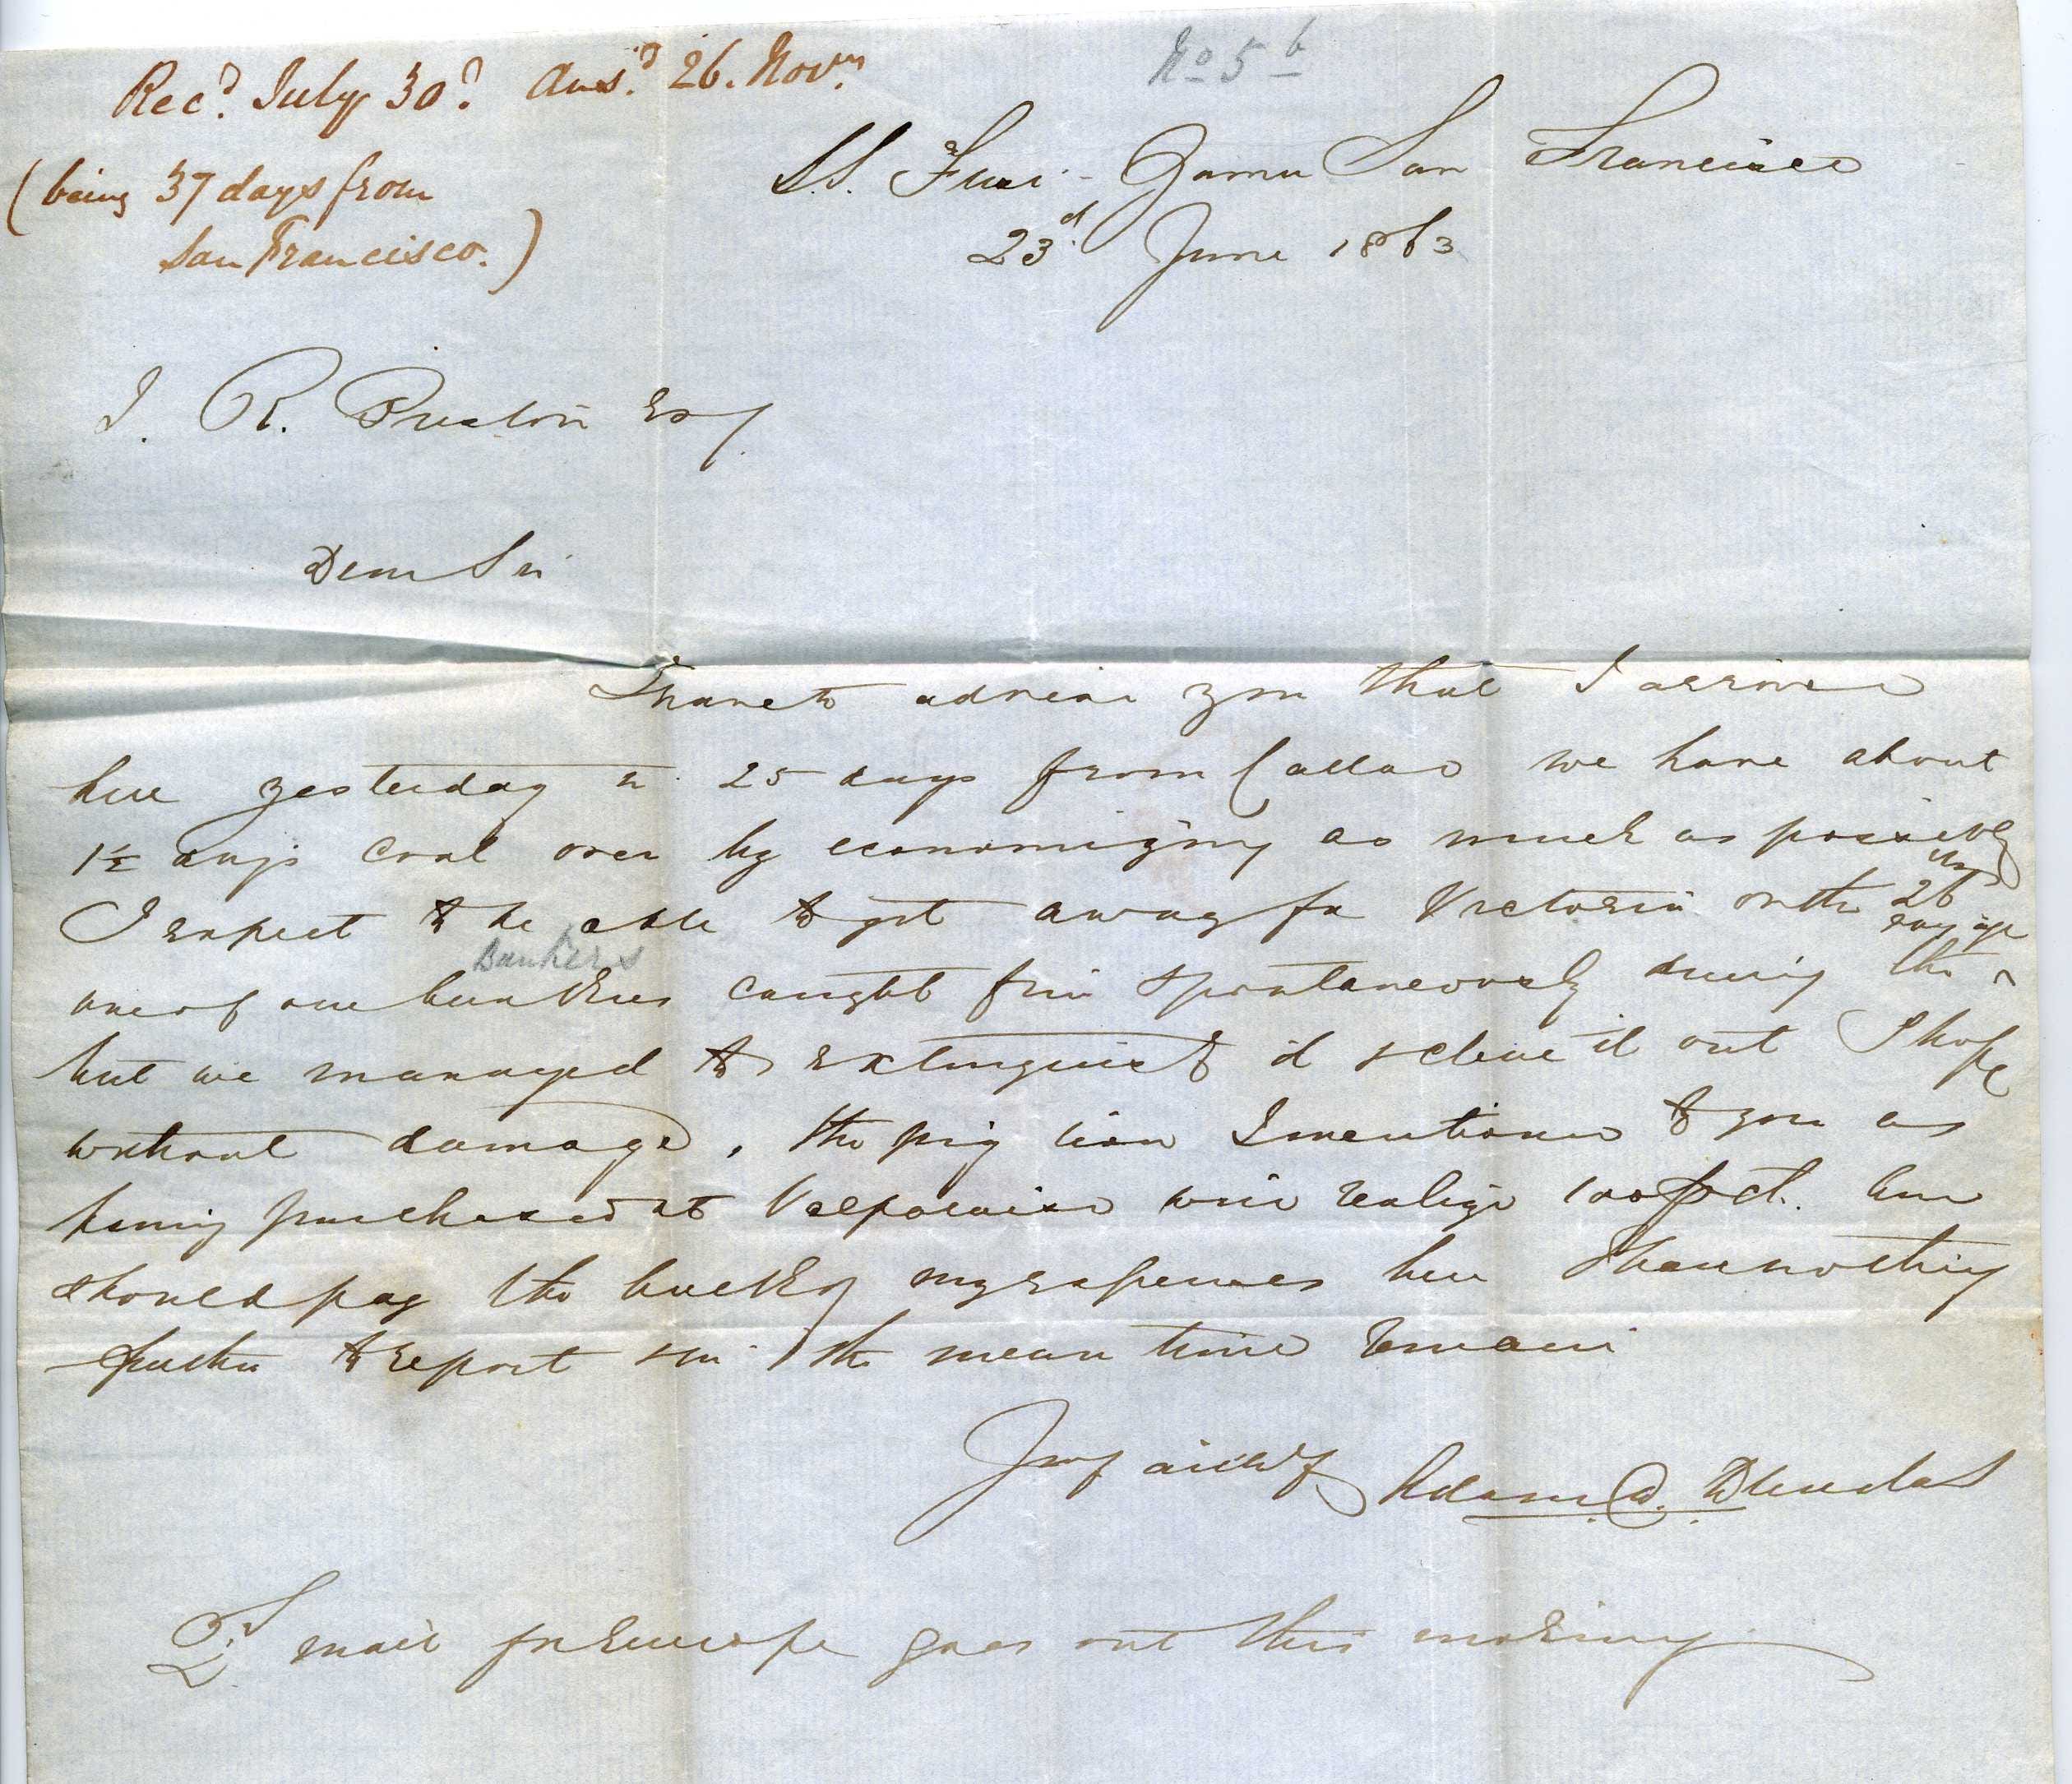 Recd. July 30d. Ansd. 26. Novr.
No 5 b
(being 37 days from
San Francisco.)
S.S. Fusi-Yama San Francisco
23d. June 1863
J. R. Preston Esq
Dear Sir
I have to advise you that I arrived
here yesterday in 25 days from Callao we have about
1½ days coal over by economizing as much as possible
I expect to be able to get away for Victoria on the 26th
Bunkers
one of our bunkers caught fire spontaneously during the voyage
but we managed to extinguish it & clear it out I hope
without damage, the pig iron I mentioned to you as
having purchased at Valparaiso will realize 100 pct. here
should pay the bulk of my expenses here I have nothing
further to report & in the mean time remain
Yrs faithf Adam D. Dundas
mail for Europe goes out this morning